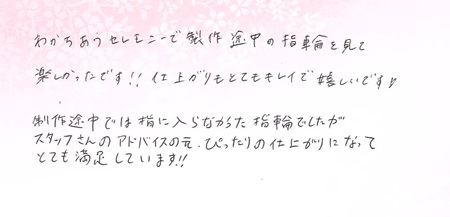 わかちあうセレモニーで製作途中の指輪を見て
楽しかったです!!仕上がりもとてもキレイで嬉しいです♪
制作途中では指に入らなかった指輪でしたが
スタッフさんのアドバイスの元、ぴったりの仕上がりになって
とても満足しています!!